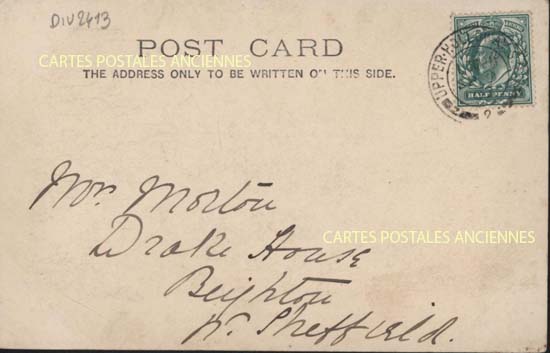 DIV2413
CARTES POSTALES ANCIENNES
POST CARD
THE ADDRESS ONLY TO BE WRITTEN ON THIS SIDE.
UPPER
HALFPENNY
Mr. Morton
CARTES POSTALES ANCIENNES
Drake House
Beighton
Nr. Sheffield.